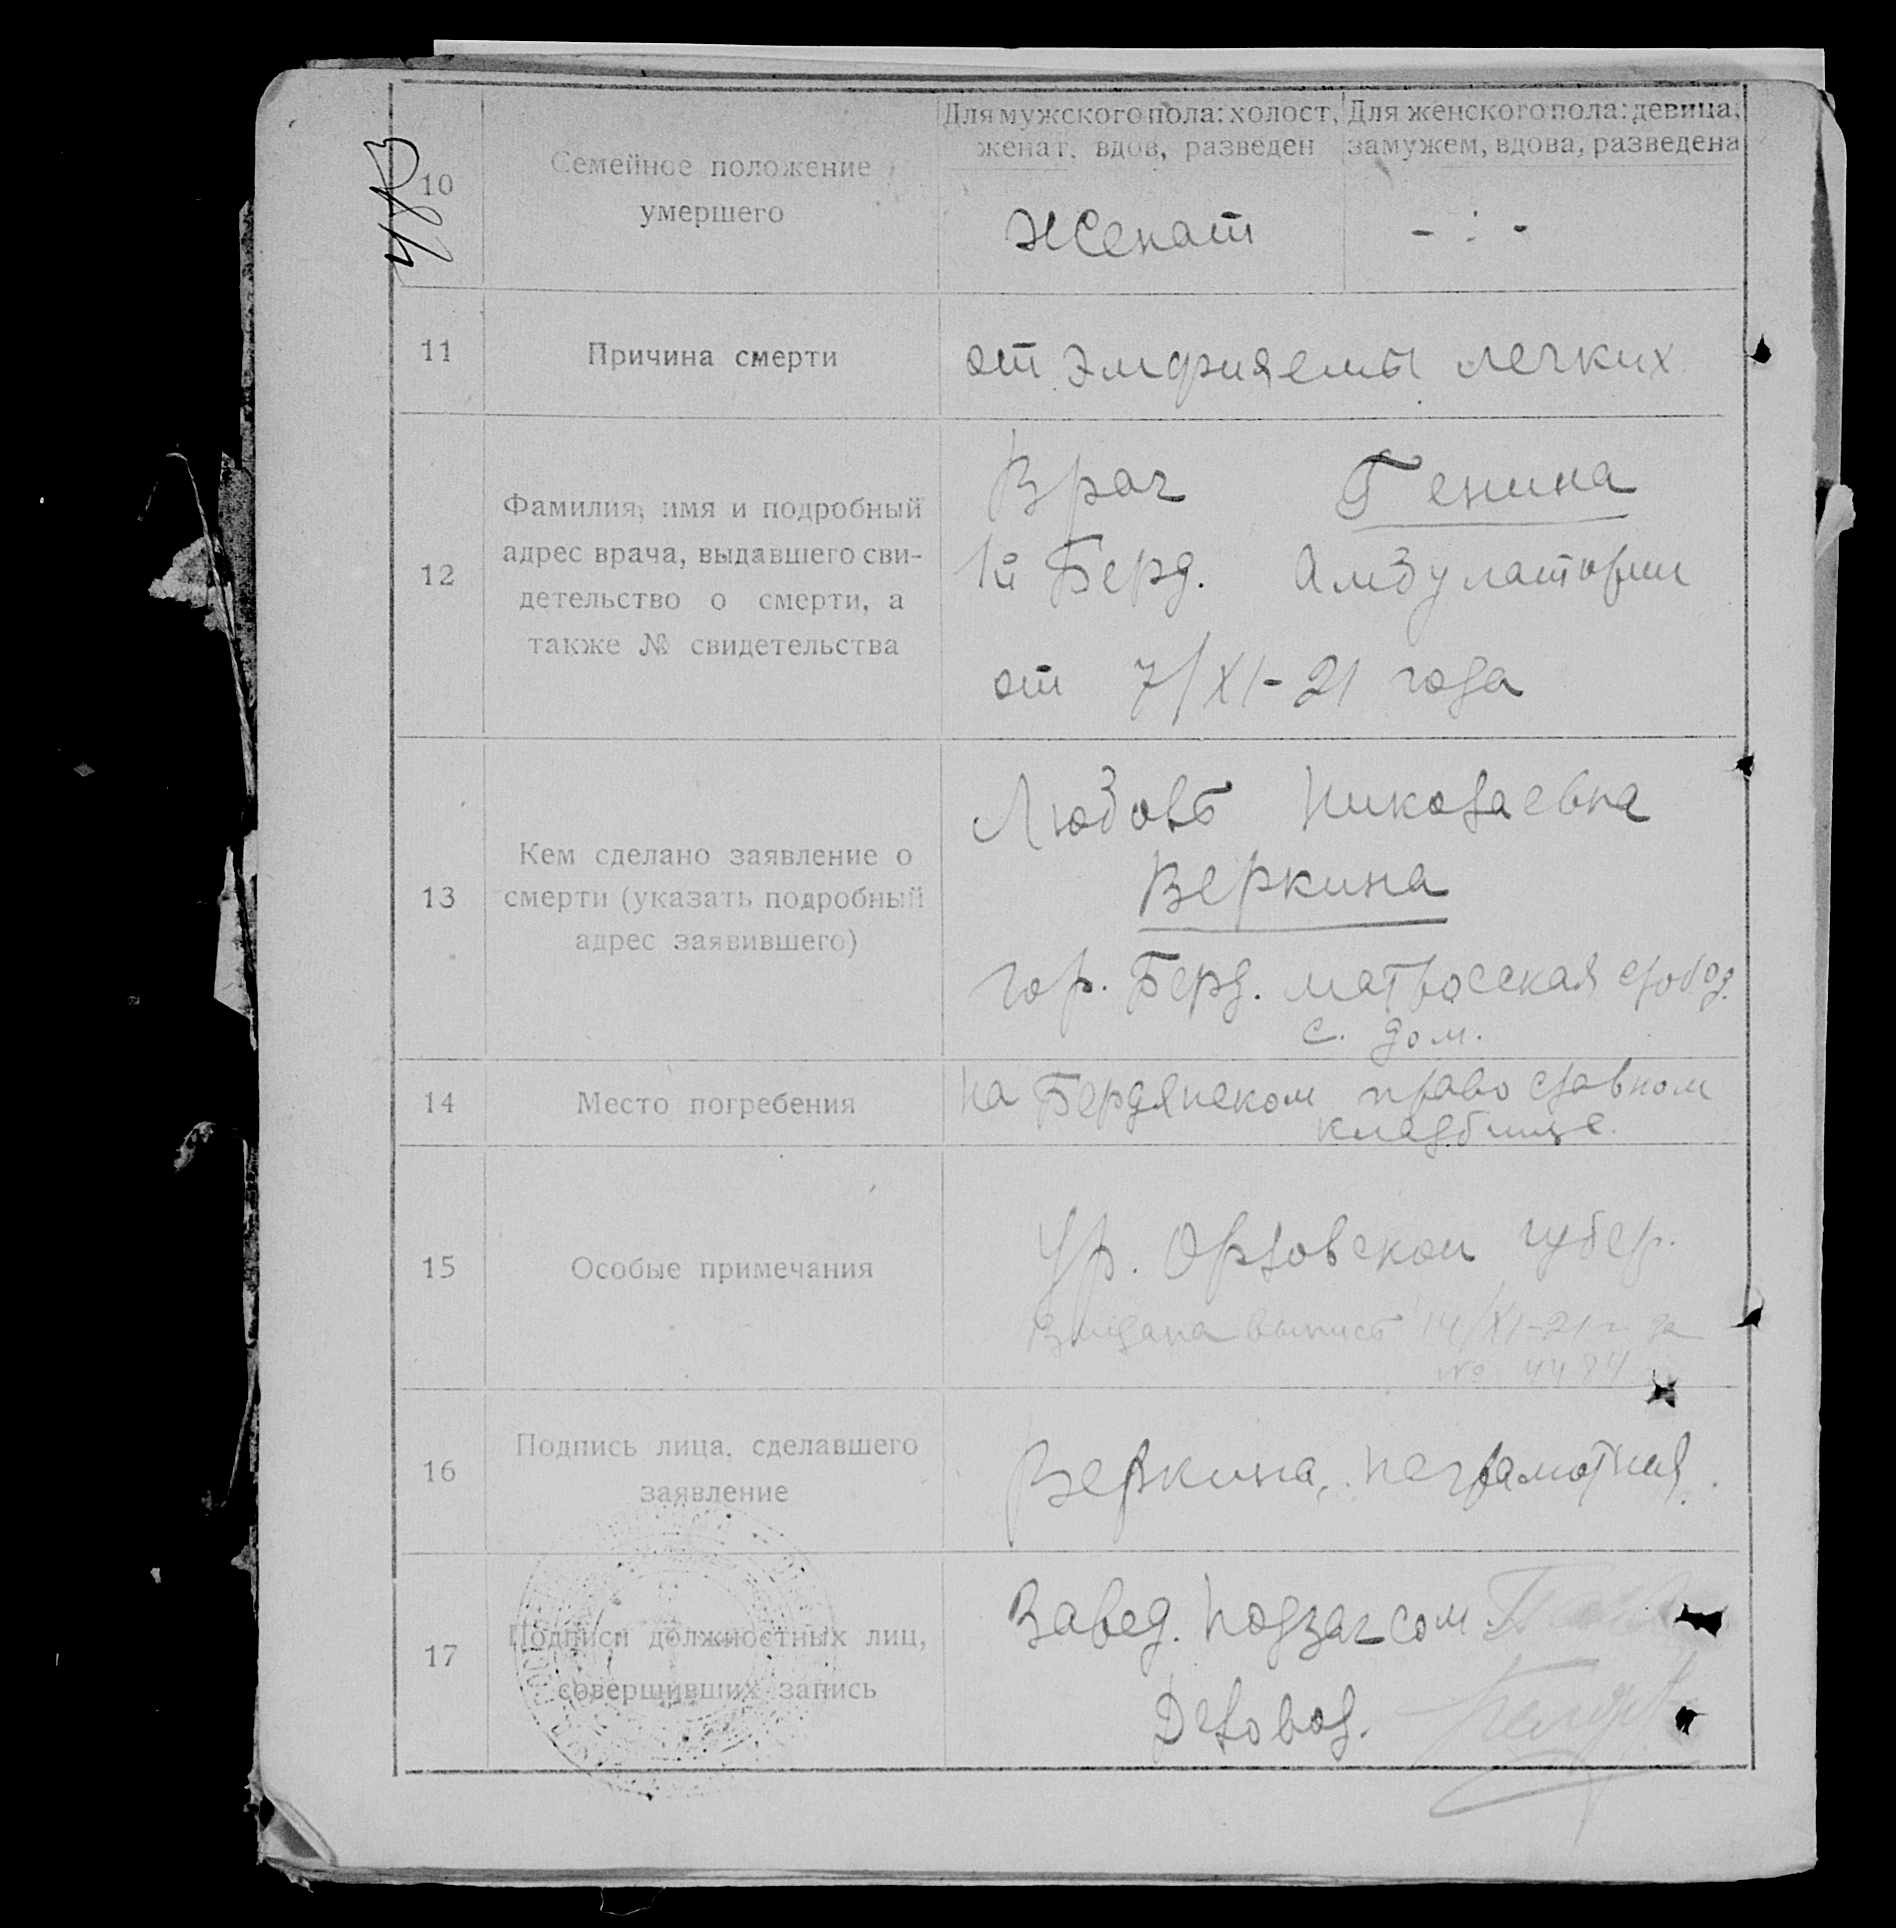 483
10
Семейное положение
умершего
Для мужского пола: холост,
женат, вдов, разведен
Для женского пола: девица,
замужем, вдова, разведена
Женат
- : -
11
Причина смерти
от эмфиземы легких
12
Фамилия, имя и подробный
адрес врача, выдавшего сви-
детельство о смерти, а
также № свидетельства
Врач Генина
1й Берд. Амбулатории
от 7/XI-21 года
13
Кем сделано заявление о
смерти (указать подробный
адрес заявившего)
Любовь Николаевна
Веркина
гор. Берд. матросская слобод.
с. дом.
14
Место погребения
на Бердянском православном
кладбище.
15
Особые примечания
Ур. Орловской губер.
Выдана выпись 14/XI-21 г. за
№ 4484
16
Подпись лица, сделавшего
заявление
Веркина, неграмотная.
17
Подписи должностных лиц,
совершивших запись
Завед. подзагсом
Деловод.